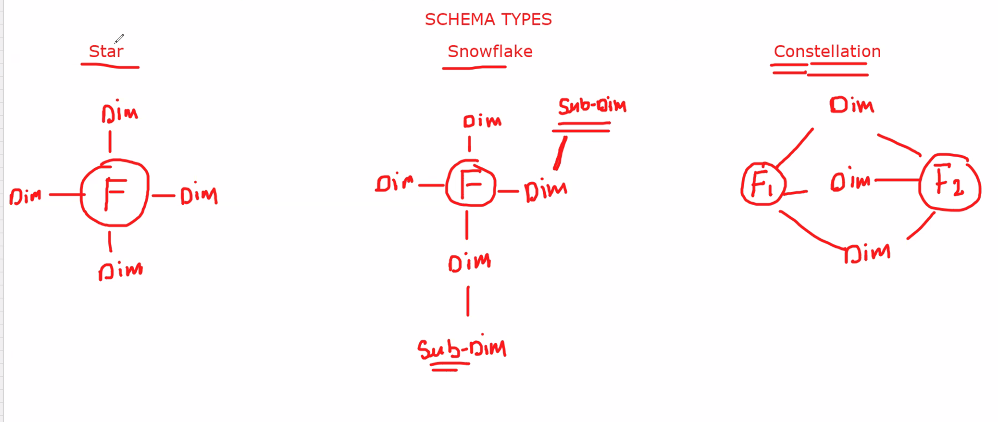 SCHEMA TYPES
Star
Dim
Dim
F
Dim
Dim
Snowflake
Sub-Dim
Dim
Dim
F
Dim
Dim
Sub-Dim
Constellation
Dim
F1
Dim
F2
Dim